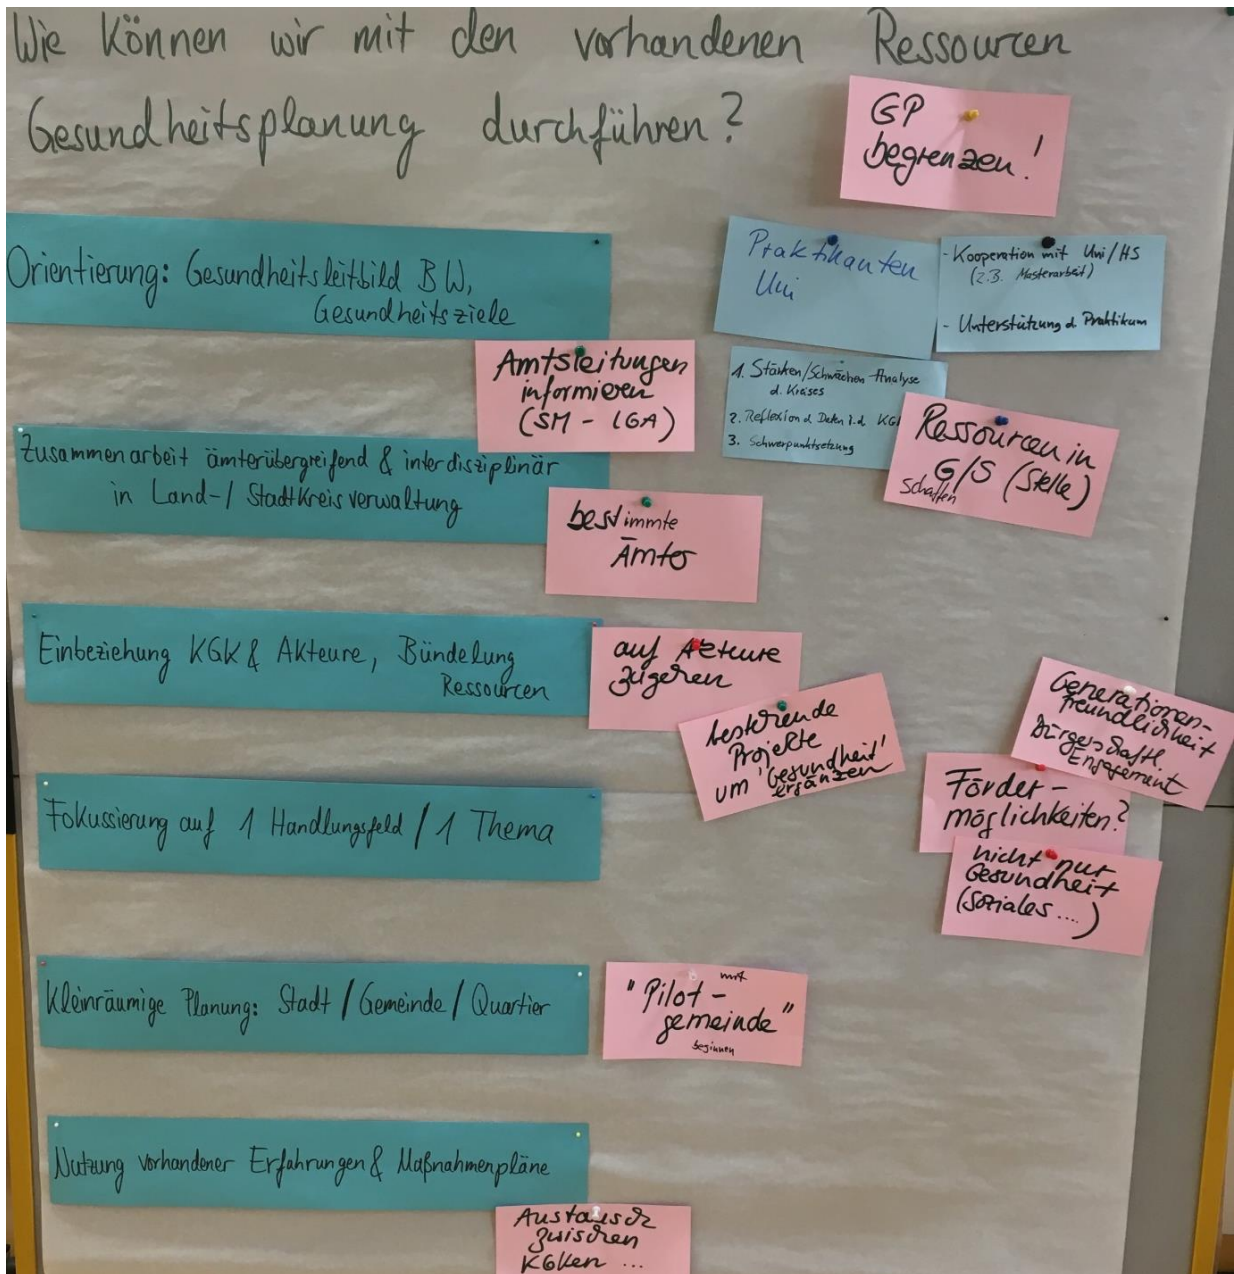 Wie können wir mit den vorhandenen Ressourcen
Gesundheitsplanung durchführen?
GP
begrenzen!
Orientierung: Gesundheitsleitbild BW,
Gesundheitsziele
Praktikanten
Uni
- Kooperation mit Uni/HS
(z.B. Masterarbeit)
- Unterstützung d Praktikum
Amtsleitungen
informieren
(SM - LGA)
1. Stärken/Schwächen Analyse
d. Kreises
2. Reflexion d Daten i.d. KGK
3. Schwerpunktsetzung
Ressourcen in
G/S (Stelle)
schaffen
Zusammenarbeit ämterübergreifend & interdisziplinär
in Land-/Stadtkreisverwaltung
bestimmte
Ämter
Einbeziehung KGK & Akteure, Bündelung
Ressourcen
auf Akteure
zugehen
bestehende
Projekte
um 'Gesundheit'
ergänzen
Generationen-
freundlichkeit
Bürgerschaftl.
Engagement
Förder-
möglichkeiten?
nicht nur
Gesundheit
(Soziales ....)
Fokussierung auf 1 Handlungsfeld / 1 Thema
Kleinräumige Planung: Stadt / Gemeinde / Quartier
mit
"Pilot-
gemeinde"
beginnen
Nutzung vorhandener Erfahrungen & Maßnahmenpläne
Austausch
zwischen
KGKen ...